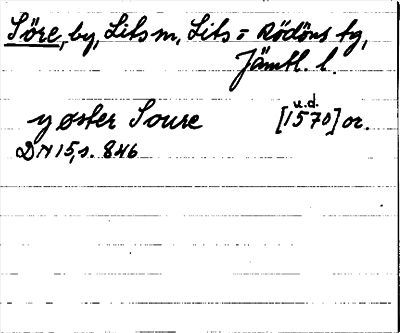 Söre, by, Lits m, Lits = Rödöns tg,
Jämtl. l.
u.d.
y øster Soure [1570] or.
DN 15, s. 846